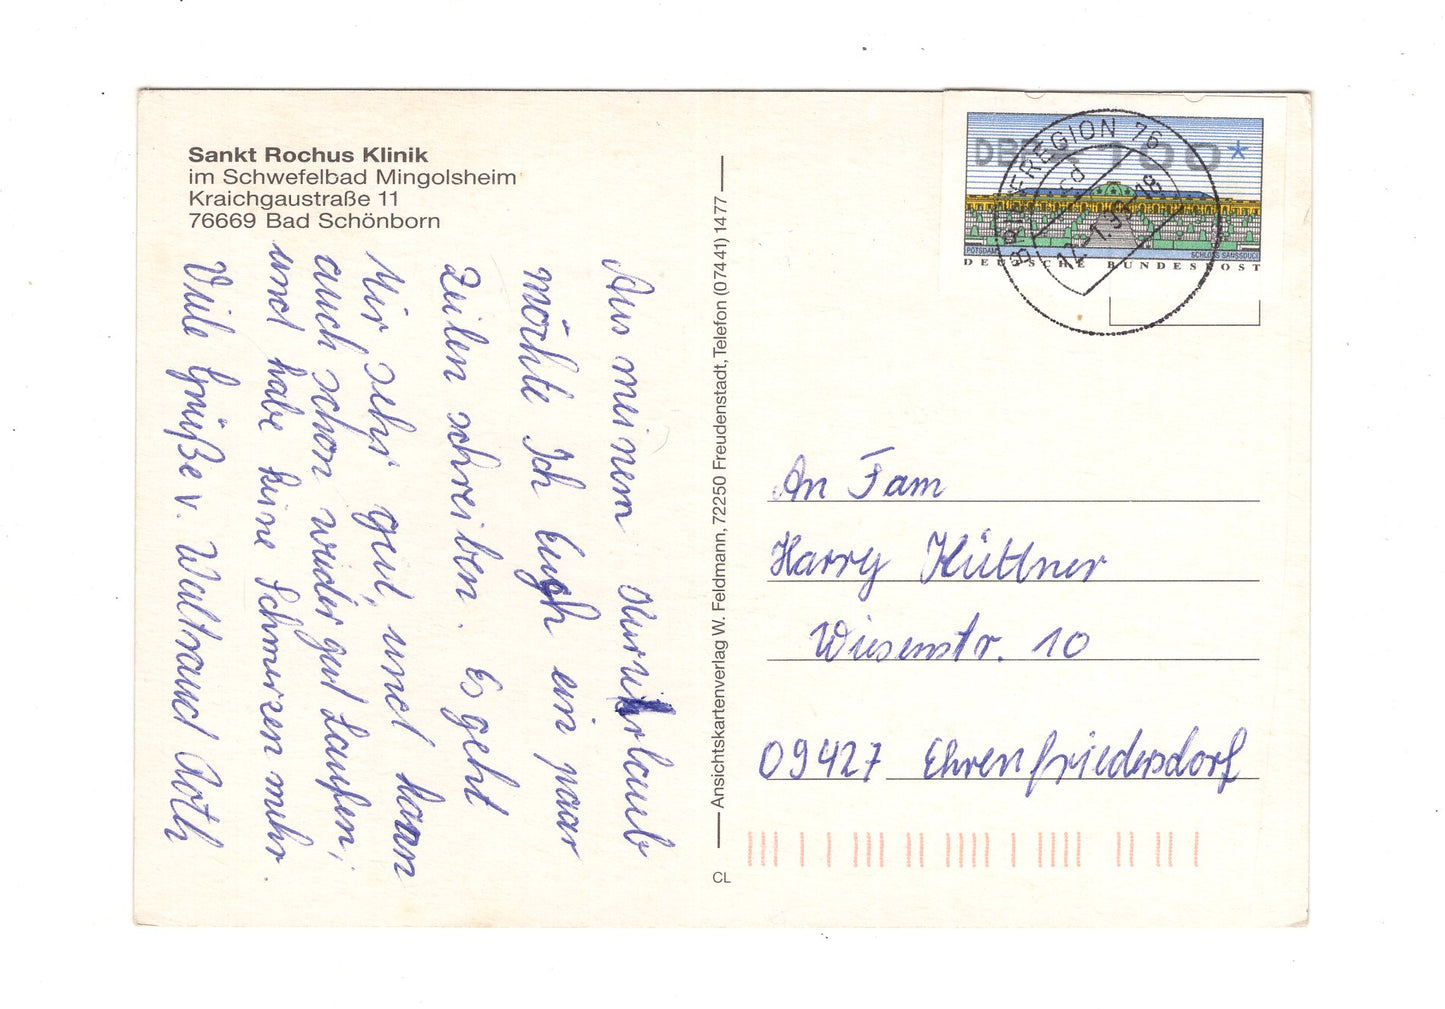 Sankt Rochus Klinik
im Schwefelbad Mingolsheim
Kraichgaustraße 11
76669 Bad Schönborn
Aus meinem Kururlaub
möchte Ich Euch ein paar
Zeilen schreiben. Es geht
Mir sehr gut, und kann
auch schon wieder gut Laufen,
und habe keine Schmerzen mehr.
Viele Grüße v. Waltraud Roth
Ansichtskartenverlag W. Feldmann, 72250 Freudenstadt, Telefon (07441) 1477
CL
DBP 100 *
POTSDAM SCHLOSS SANSSOUCI
DEUTSCHE BUNDESPOST
BRIEFREGION 76
cd
-18
An Fam
Harry Hüttner
Wiesenstr. 10
09427 Ehrenfriedersdorf